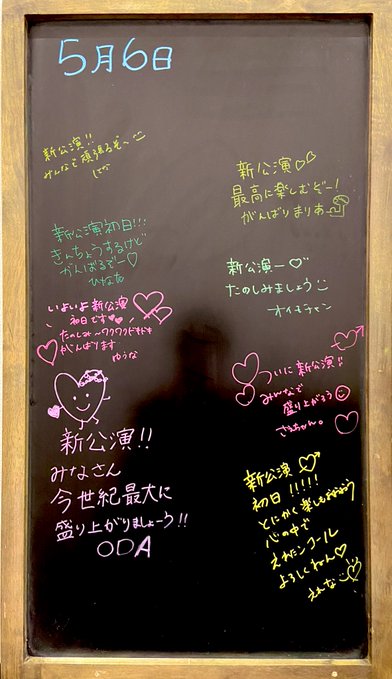 5月6日
新公演!!
みんなで頑張るぞ〜
はな
新公演初日!!!
きんちょうするけど
がんばるぞー♡
ひなた
いよいよ新公演
初日です♥♥
たのしみ〜ワクワクドキドキ
がんばります
ゆうな
新公演!!
みなさん
今世紀最大に
盛り上がりましょーう!!
ODA
新公演♡♡
最高に楽しむぞー!
がんばりまりあ
新公演ー♡
たのしみましょう
オイモチャン
ついに新公演!!
みんなで
盛り上がろう
さきちゃん。
新公演
初日!!!!!
とにかく楽しもすよう
心の中で
えれたんコール
よろしくねん♡
えれな